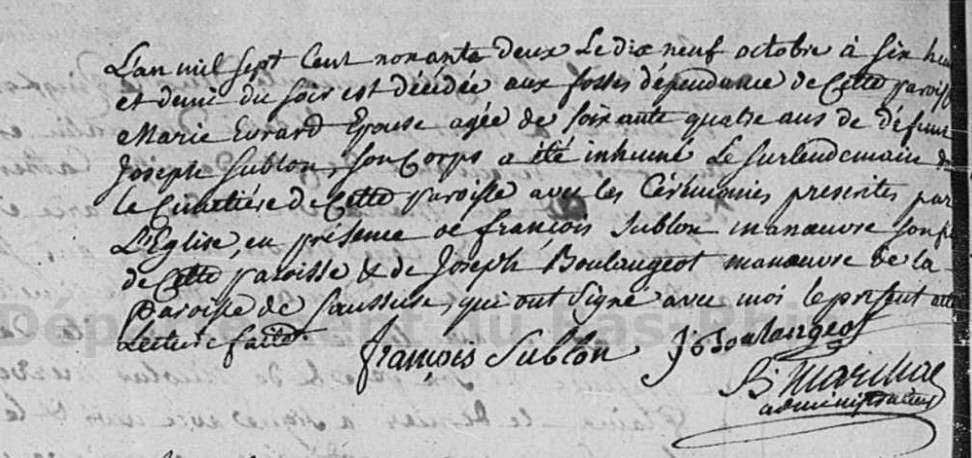 L'an mil sept Cent nonante deux Le dix neuf octobre à six heu
et demie du soir est décédée aux fosses dépendance de Cette paroisse
Marie Evrard Epouse agée de soixante quatre ans de défunt
Joseph Sublon, son Corps a été inhumé Le surlendemain
le Cimetiére de Cette paroisse avec les Cérémonies prescrites par
L'Eglise, en présence de françois Sublon manœuvre son fi
de Cette paroisse & de Joseph Boulangeot manœuvre de la
Paroisse de Saussure, qui ont signé avec moi le présent acte
Lecture faite.
françois Sublon J Boulangeot
administrateur
Département du Bas-Rhin